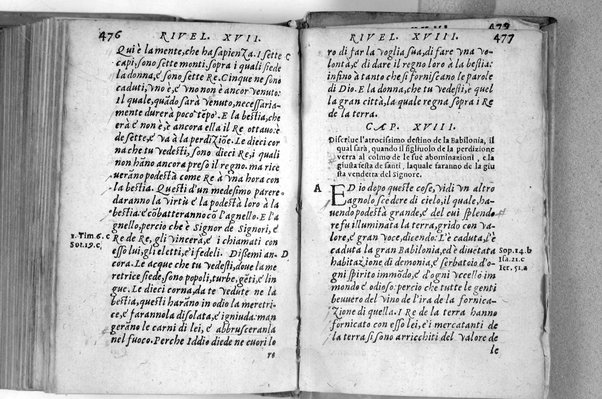 476 RIVEL. XVII.
Qui è la mente, che ha sapienza. I sette C
capi, sono sette monti. sopra i quali siede
la donna, e sono sette Re. Cinque ne sono
caduti, vno è, e vno non è ancor venuto:
il quale, quãdo sarà venuto, necessaria-
mente durerà poco tẽpo. E la bestia, che
era e non è, è ancora ella il Re ottauo: è
de sette, e va à la perdiziõe. Le dieci cor
na che tu vedesti, sono dieci Re, i quali
non hãno ancora preso il regno. ma rice
uerãno podestà come Re à vna hora con
la bestia. Questi d'un medesimo parere
daranno la virtù e la podestà loro à la
bestia. e cõbatteranno cõ l'agnello. E l'a
gnello, percio che è Signor de Signori, e
1. Tim. 6. c Re de Re, gli vincerà, e i chiamati con
Sot. 19. c, esso lui, gli eletti, e i fedeli. Dissemi an- D
cora. Le acque che tu vedesti, doue la me
retrice siede, sono popoli, turbe, gẽti, e lin
gue. Le dieci corna, da te vedute ne la
bestia, questi harãno in odio la meretri
ce, e farannola disolata, e igniuda: man
gerãno le carni di lei, e abbrusceranla
nel fuoco. Perche Iddio diede ne cuori lo
ro
479
RIVEL. XVIII. 477
ro di far la voglia sua, di fare vna vo-
lontà, e di dare il regno loro à la bestia:
infino à tanto che si forniscano le parole
di Dio. E la donna, che tu vedesti, è quel
la gran città, la quale regna sopra i Re
de la terra.
CAP. XVIII.
Discriue l'atrocissimo destino de la Babilonia, il
qual sarà, quando il figliuolo de la perdizione
verra al colmo de le sue abominazioni, e la
giusta festa de santi, laquale faranno de la giu
sta vendetta del Signore.
A ED io dopo queste cose, vidi vn altro
agnolo scẽdere di cielo, il quale, ha-
uendo podestà grande, e del cui splendo
re fu illuminata la terra, grido con va-
lore, e gran voce, dicendo. L'è caduta, l'è
caduta la gran Babilonia, ed è diuẽtata Sop. 14. b
habitazione di demonia, e serbatoio d'o- Isa. 21. c
gni spirito immõdo, e d'ogni vcello im Ier. 51. a
mondo e odioso: percio che tutte le genti
beuuero del vino de l'ira de la fornica-
zione di quella. I Re de la terra hanno
fornicato con esso lei, e i mercatanti de
la terra si sono arricchiti del valore de
le